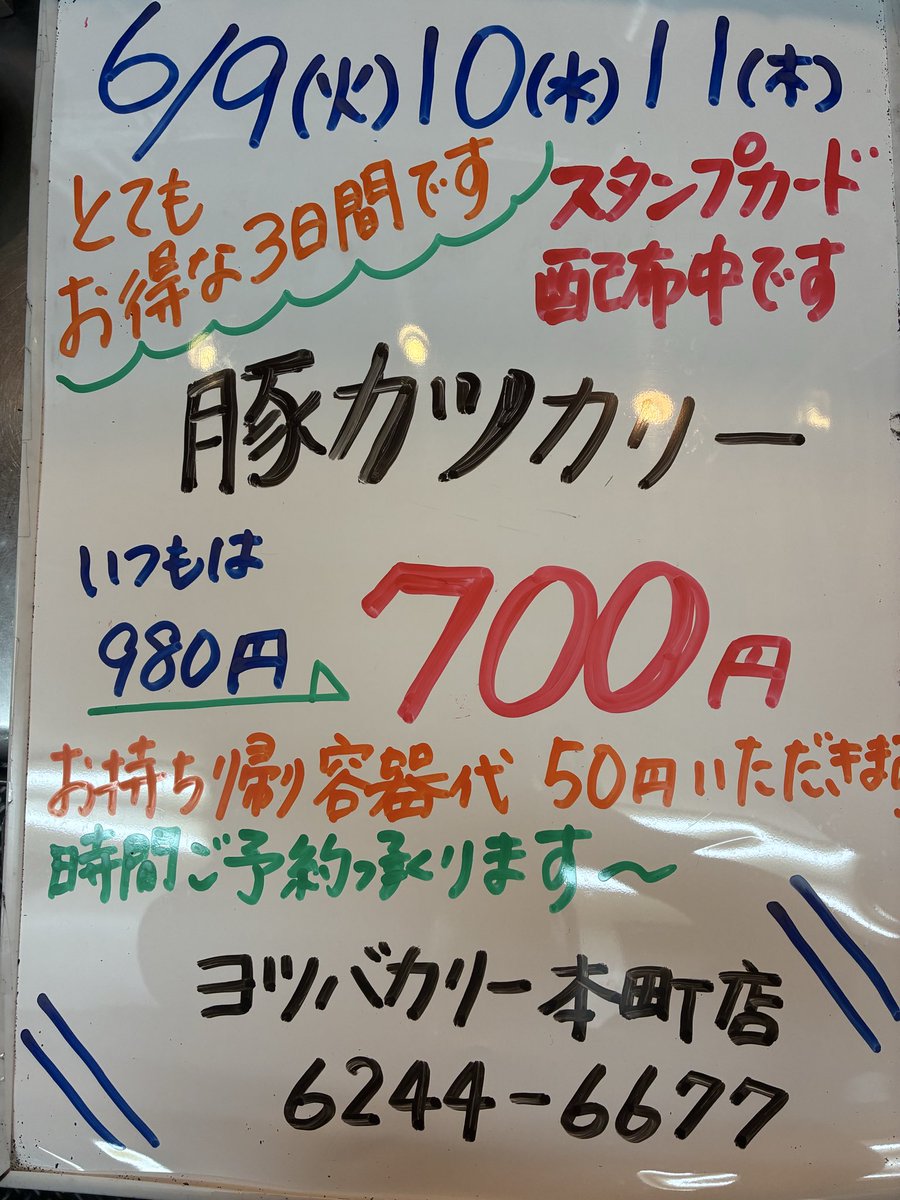 6/9(火)10(水)11(木)
とても
お得な3日間です
スタンプカード
配布中です
豚カツカリー
いつもは
980円
700円
お持ち帰り容器代 50円いただきます
時間ご予約承ります〜
ヨツバカリー本町店
6244-6677